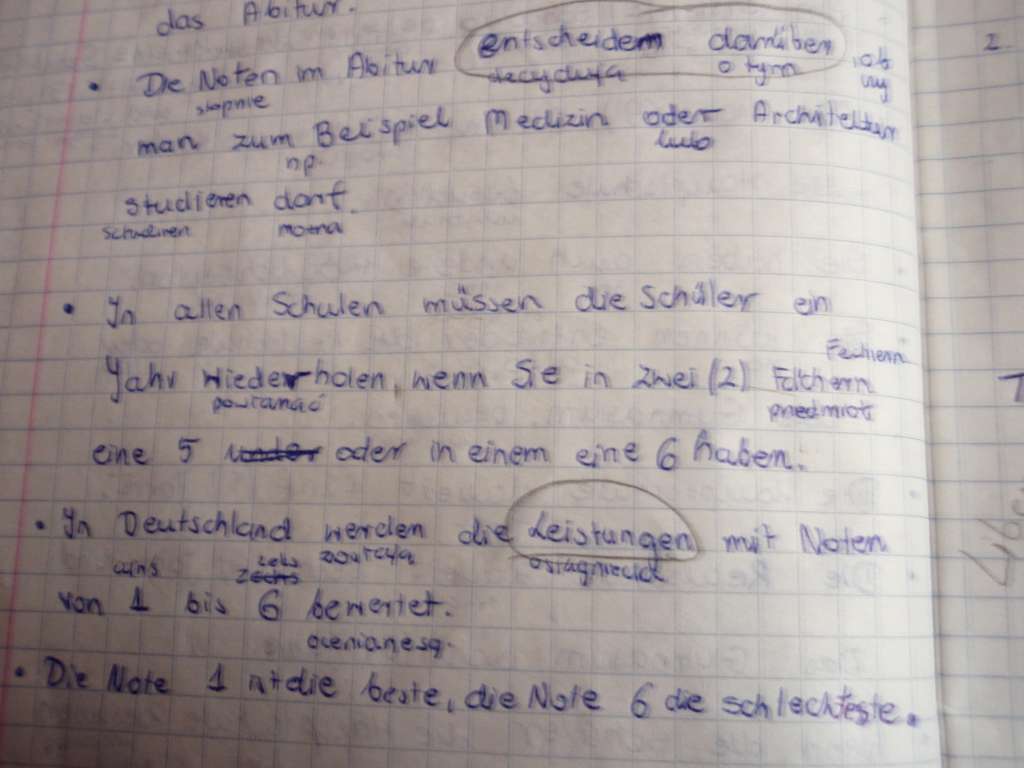 das Abitur.
• Die Noten im Abitur entscheiden darüber, ob
stopnie decydują o tym czy
man zum Beispiel Medizin oder Architektur
np. lub
studieren darf.
można
• In allen Schulen müssen die Schüler ein
Fächern
Jahr wiederholen, wenn Sie in zwei (2) Fächern
powtarzać przedmiot
eine 5 oder in einem eine 6 haben.
• In Deutschland werden die Leistungen mit Noten
zostają osiągnięcia
von 1 bis 6 bewertet.
oceniane są.
• Die Note 1 ist die beste, die Note 6 die schlechteste.